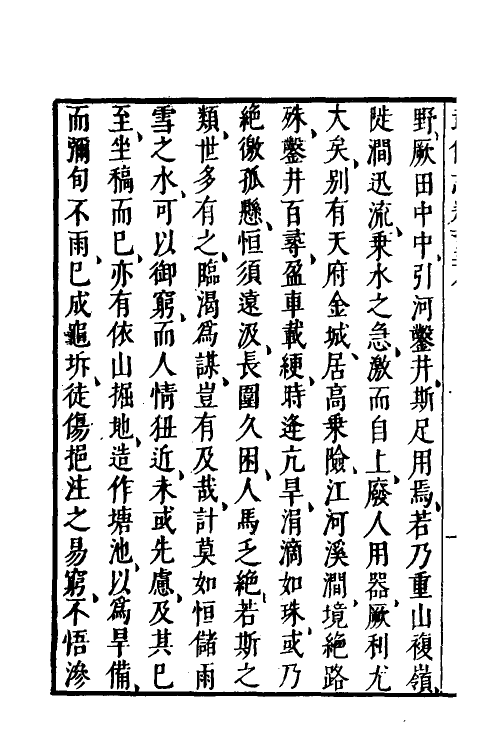 野、厥田中中、引河鑿井、斯足用焉、若乃重山複嶺、
陡澗迅流、乗水之急、激而自上、廢人用器、厥利尤
大矣、别有天府金城、居高乗險、江河溪澗、境絶路
殊、鑿井百尋、盈車載綆、時逢亢旱、涓滴如珠、或乃
絶徼孤懸、恒須遠汲、長圍久困、人馬乏絶、若斯之
類、世多有之、臨渴爲謀、豈有及哉、計莫如恒儲雨
雪之水、可以御窮、而人情狃近、未或先慮、及其已
至、坐槁而已、亦有依山掘地、造作塘池、以爲旱備、
而彌旬不雨、已成龜坼、徒傷挹注之易窮、不悟滲